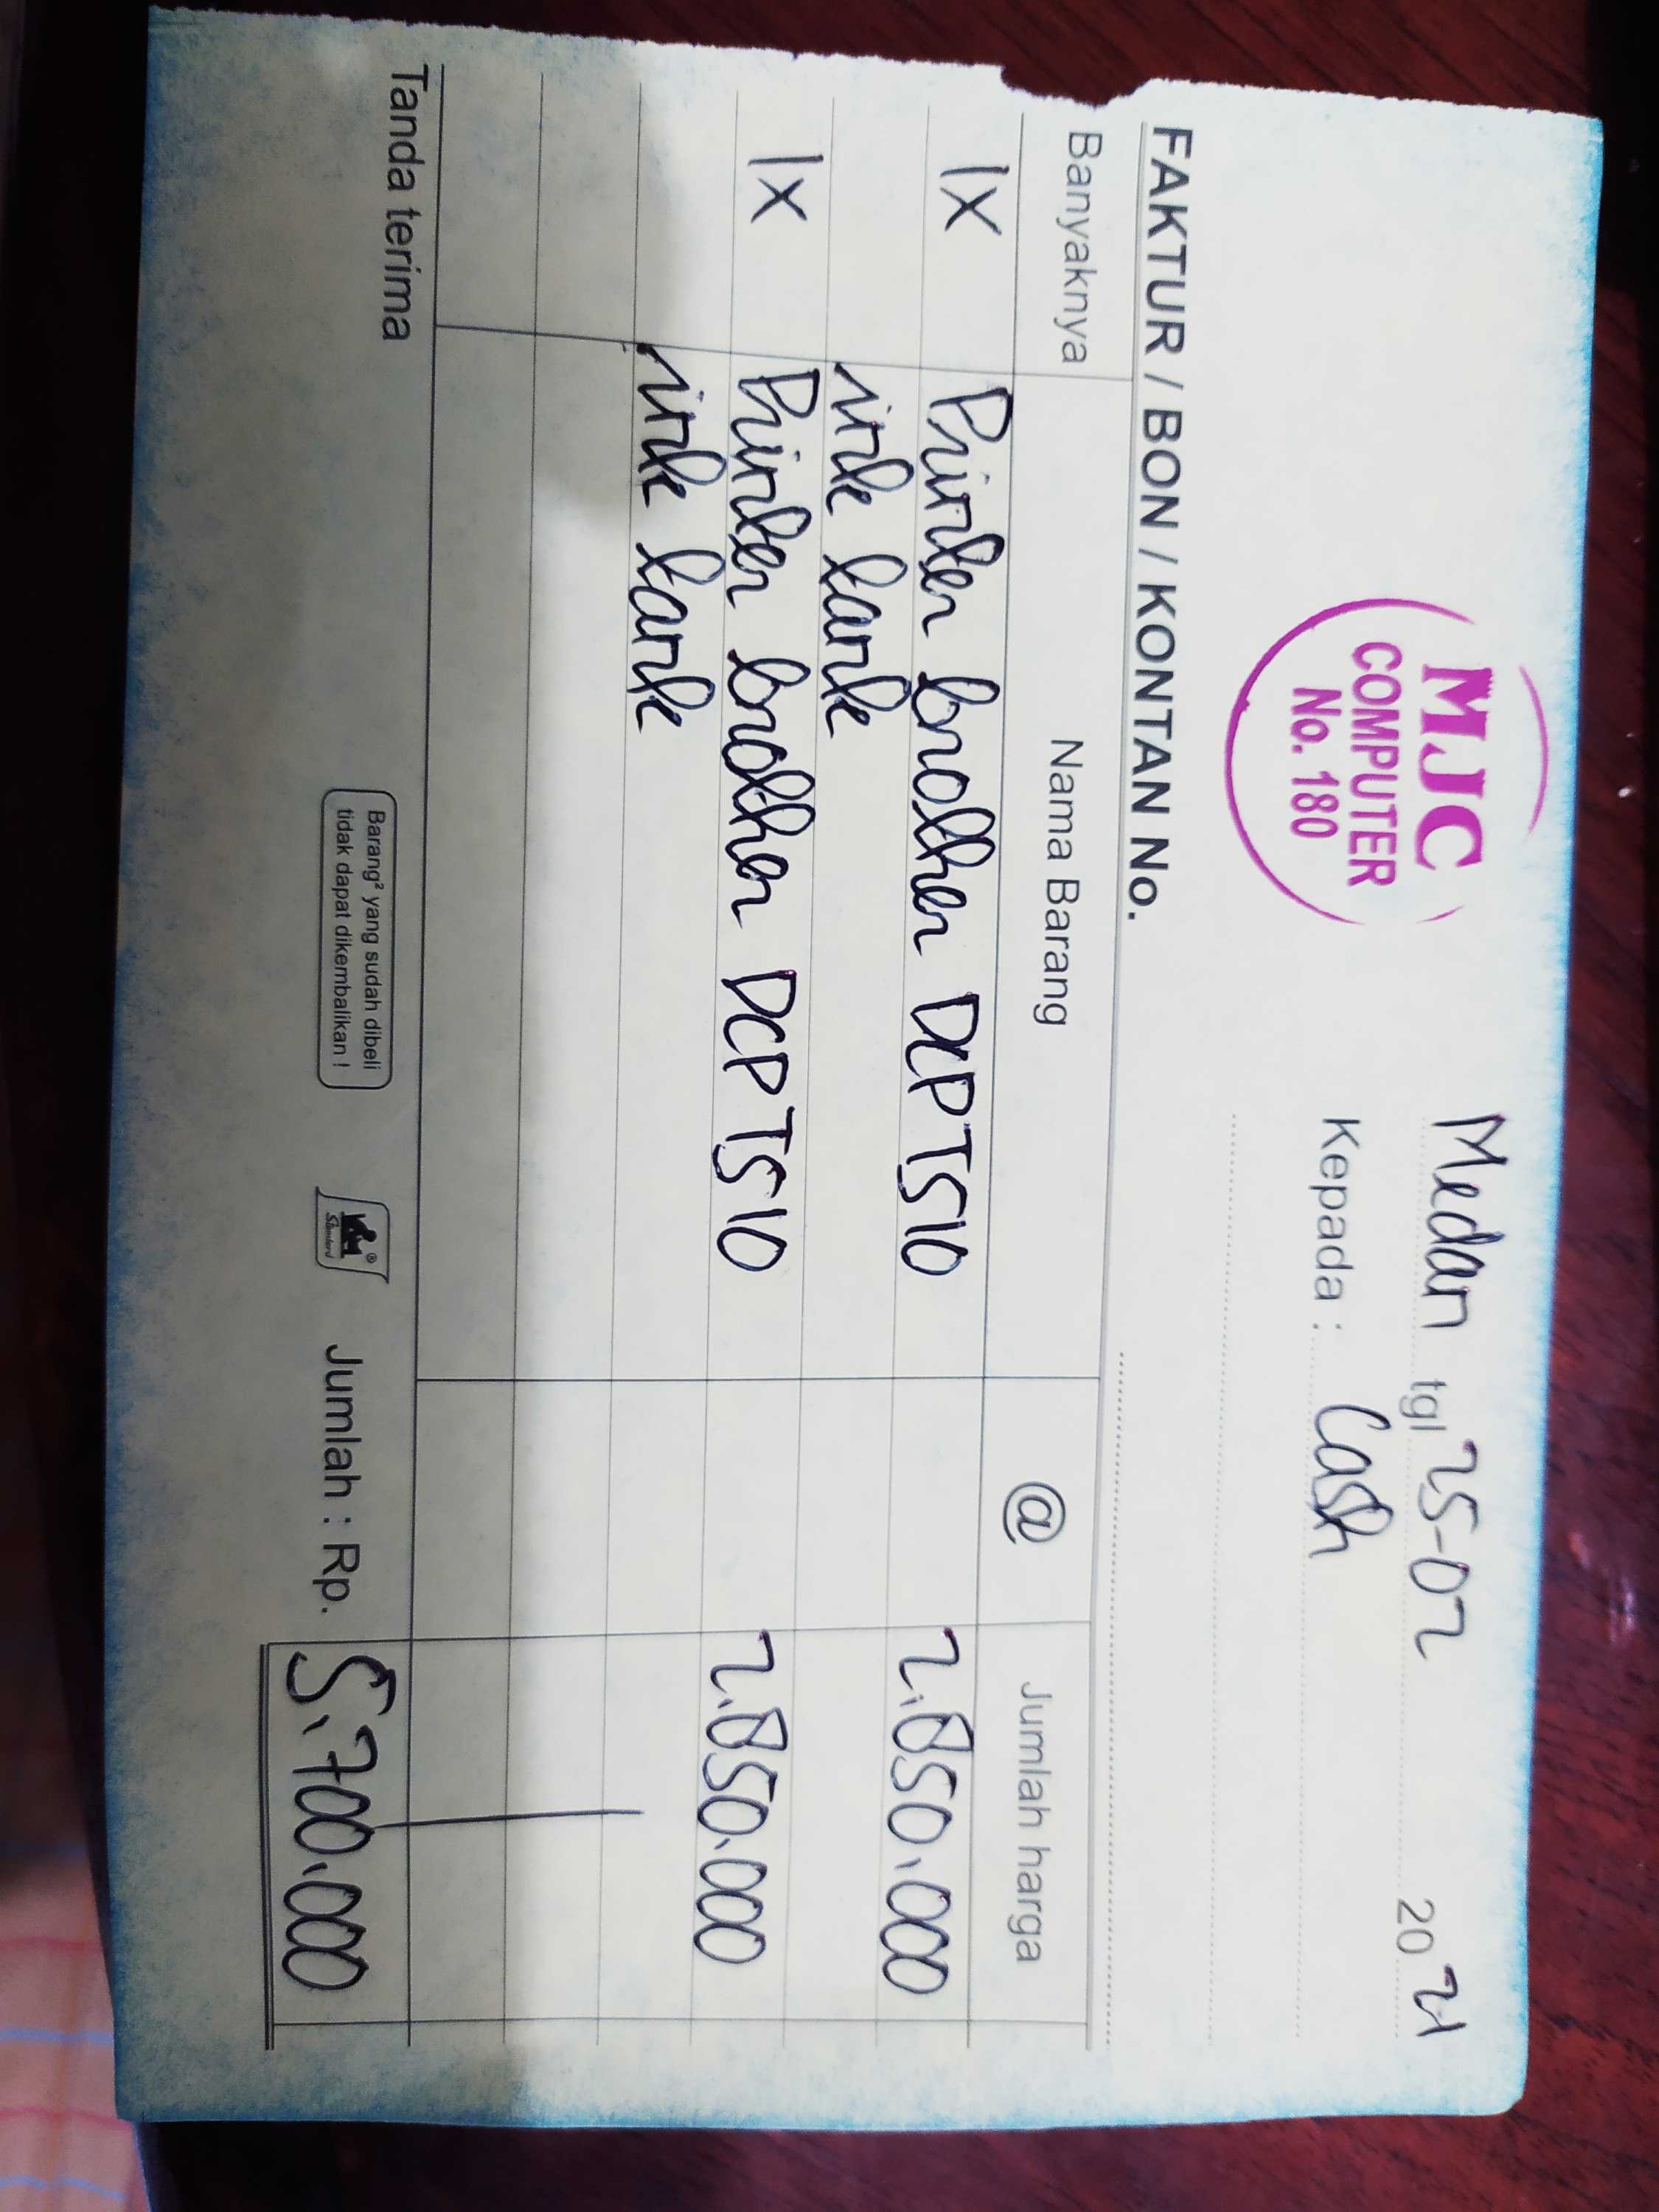 MJC
COMPUTER
No. 180
Medan tgl 25-02 2021
Kepada : Cash
FAKTUR / BON / KONTAN No.
Banyaknya Nama Barang @ Jumlah harga
1x Printer brother DCP T510 2.850.000
ink tank
1x Printer brother DCP T510 2.850.000
ink tank
Tanda terima
Barang² yang sudah dibeli
tidak dapat dikembalikan !
Standard ®
Jumlah : Rp. 5.700.000